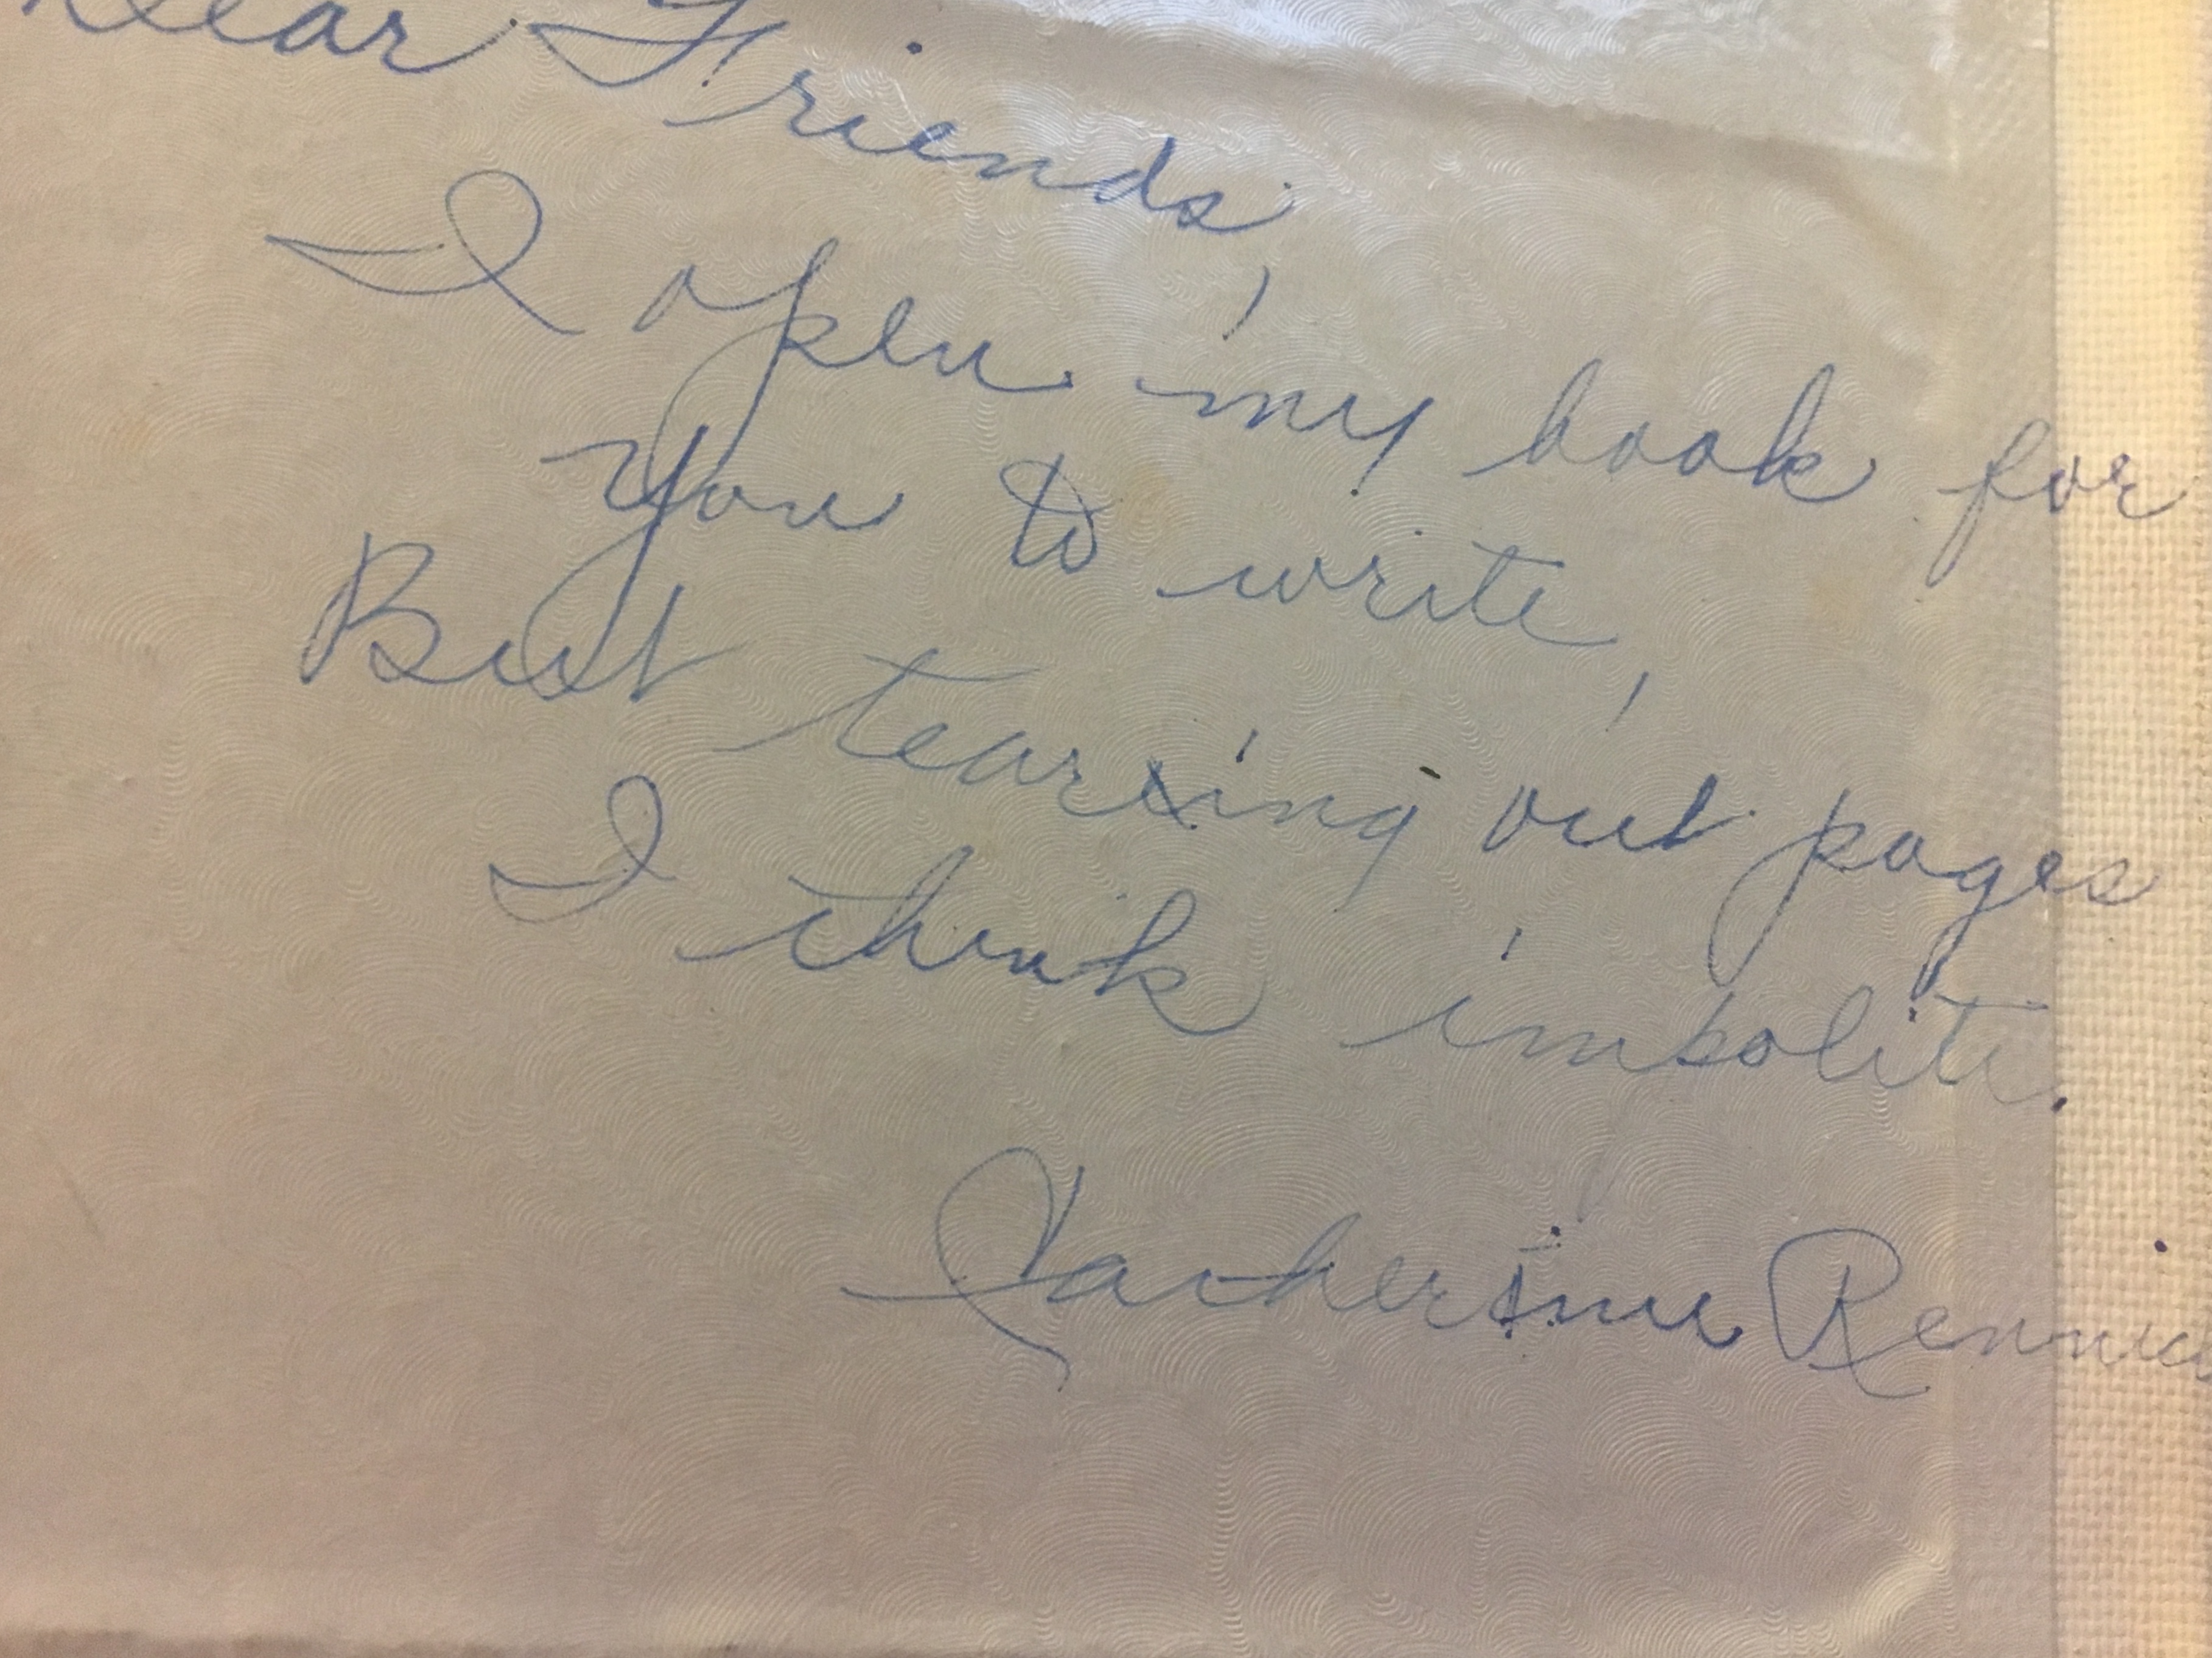 Dear Friends,
I open my book for
you to write,
But tearing out pages
I think impolite.
Katherine